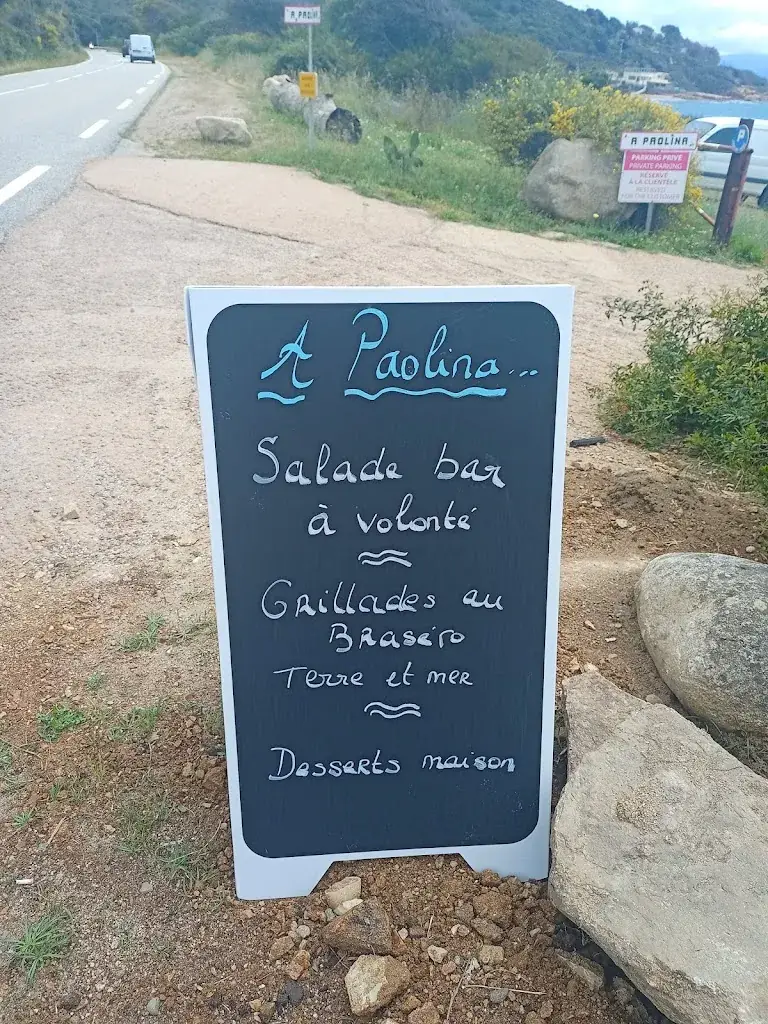 A PAOLINA
A PAOLINA
PARKING PRIVÉ
PRIVATE PARKING
RÉSERVÉ
À LA CLIENTÈLE
RESERVED
FOR THE CUSTOMER
A Paolina...
Salade bar
à volonté
Grillades au
Braséro
Terre et mer
Desserts maison